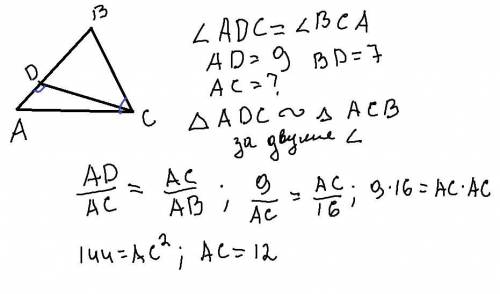 B
D
A
C
∠ADC = ∠BCA
AD = 9 BD = 7
AC = ?
△ADC ∼ △ACB
за двумя ∠
AD/AC = AC/AB ; 9/AC = AC/16 ; 9·16 = AC·AC
144 = AC² ; AC = 12